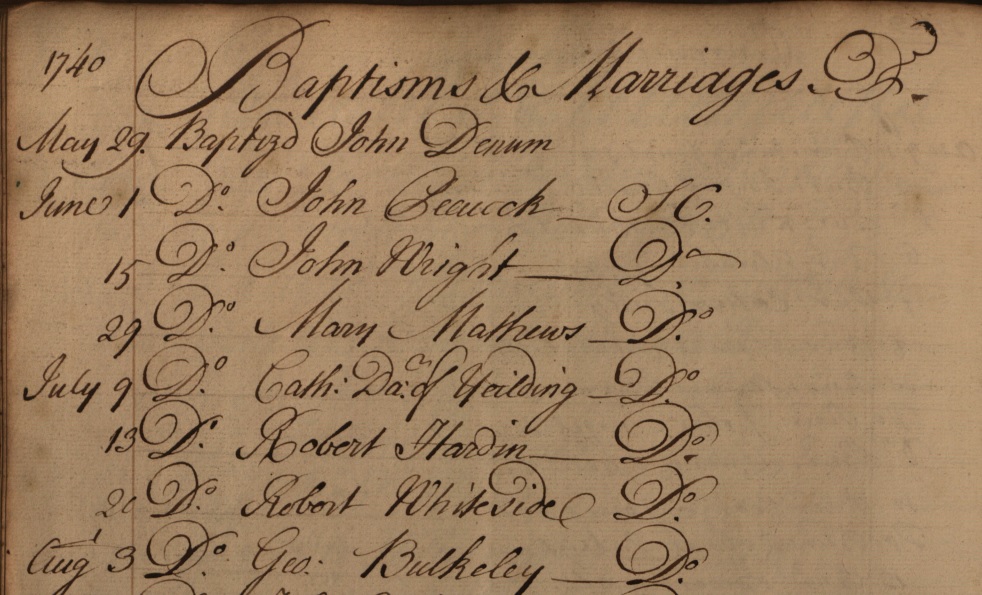 1740 Baptisms & Marriages Dr.
May 29. Baptizd John Denum
June 1 Do. John Peacock SC.
15 Do. John Wright Do.
29 Do. Mary Mathews Do.
July 9 Do. Cath: Dar. of Do.
13 Do. Robert Hardin Do.
Do. Robert Whiteside Do.
Augt 3 Do. Geo: Bulkeley Do.